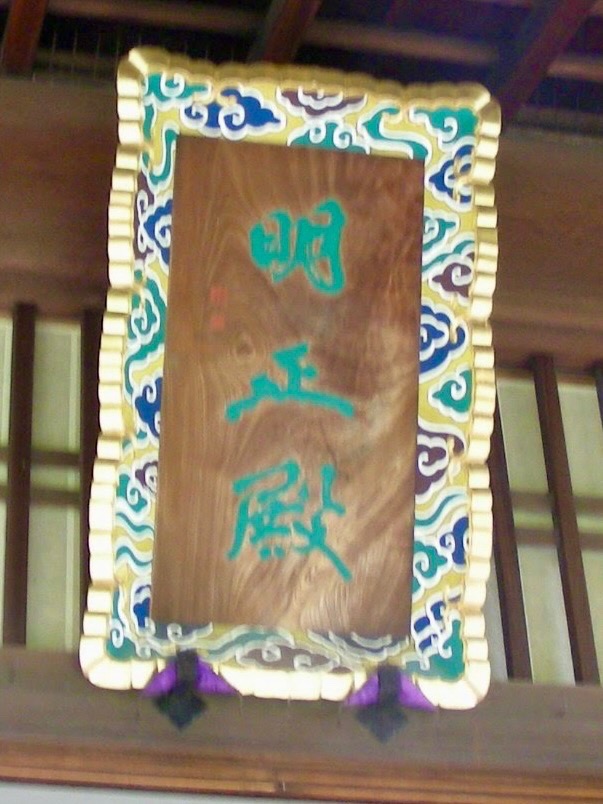 明正殿